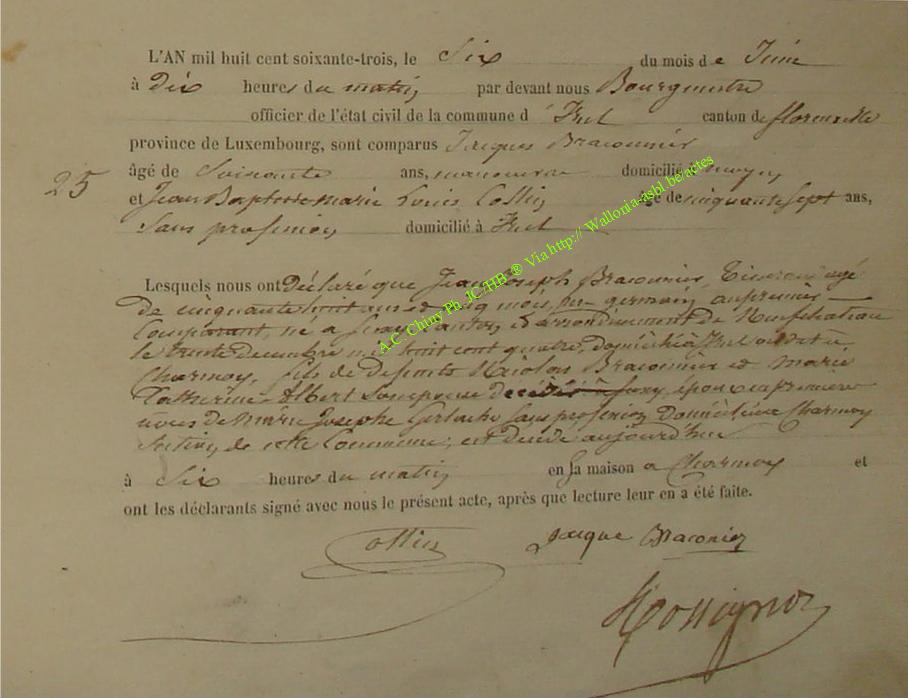 L'AN mil huit cent soixante-trois, le Six du mois de Juin
à dix heures du matin par devant nous Bourgmestre
officier de l'état civil de la commune d'Izel canton de florenville
province de Luxembourg, sont comparus Jacques Braconnier
âgé de Soixante ans, manoeuvre domicilié à
25
et Jean Baptiste marie Louis Collin âgé de cinquante sept ans,
Sans profession domicilié à Izel
Lesquels nous ont Déclaré que Jean Joseph Braconnier, Tisserand agé
de cinquante huit ans et cinq mois, germain au premier
Comparant, né a canton et arrondissement de Neufchateau
le trente decembre mil huit cent quatre, domicilié à Izel
Charmoy, fils de defunts Nicolas Braconnier et marie
Catherine Albert époux en premiere
noces de marie Josephe Gerlache Sans profession Domiciliée a Charmoy
Section de cette Commune, est Décédé aujourd'hui
à Six heures du matin en la maison a Charmoy et
ont les déclarants signé avec nous le présent acte, après que lecture leur en a été faite.
Collin Jacque Braconier
Rossignon
A.C. Chiny Ph. JC/HB ® Via http:// Wallonia-asbl.be/actes